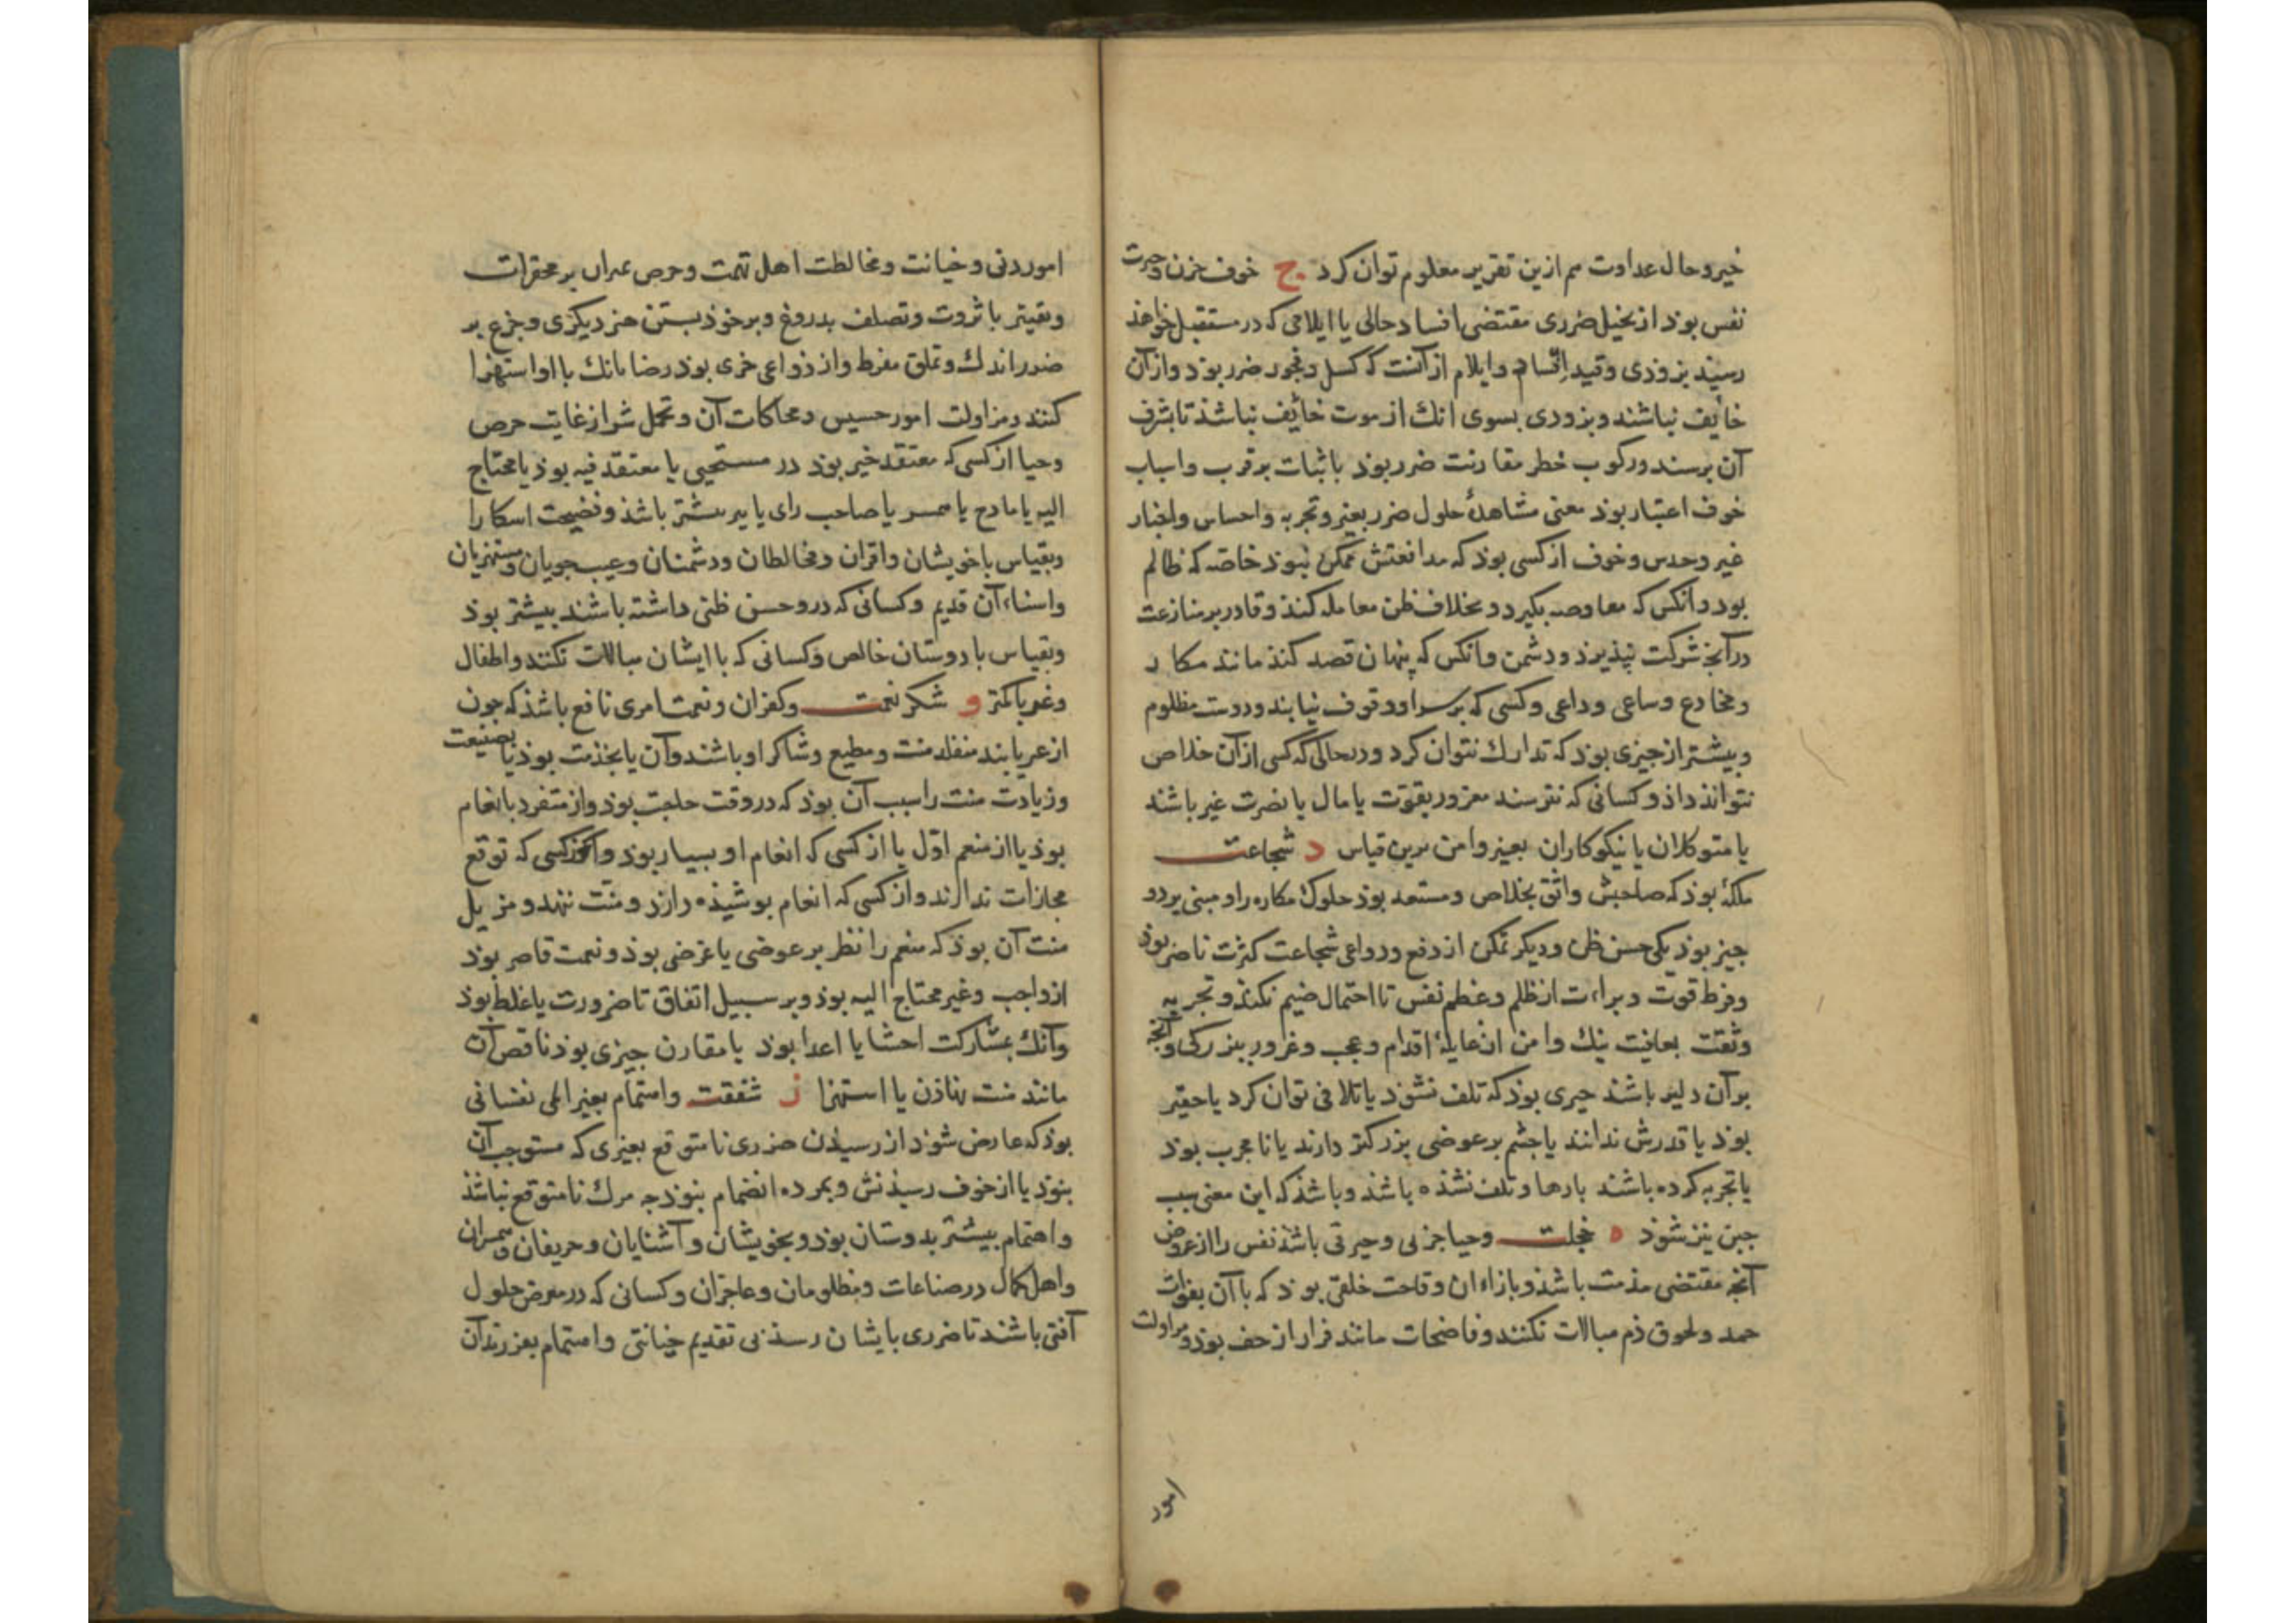 خیر و حال عداوت هم ازین تقریر معلوم توان کرد ج خوف حزن و حیرت
نفس بوذ از تخیل ضرری مقتضی افساد حالی یا ایلامی که در مستقبل خواهذ
رسیذ بزوذی و قید افساد و ایلام از آنست که کسل و فجور ضرر بوذ و از آن
خائف نباشند و بزودی بسوی انک از موت خائف نباشذ تا بشرف
آن برسند و رکوب خطر مقارنت ضرر بوذ باثبات بر قرب و اسباب
خوف اعتبار بوذ معنی مشاهدۀ حلول ضرر بغیر و تجربه و احساس و اخبار
غیر و حدس و خوف از کسی بوذ که مدافعتش ممکن نبوذ خاصه که ظالم
بود و آنکس که معاوضه بگیرد و بخلاف ظن معامله کنذ و قادر بر منازعت
در آنچ شرکت نپذیرذ و دشمن و انکس که پنهان قصد کنذ مانند مکار
و مخادع و ساعی و داعی و کسی که بر سر او وقوف نیابند و دوست مظلوم
و بیشتر از جیزی بوذ که تدارک نتوان کرد و در حالی که کسی از آن خلاص
نتوانذ داذ و کسانی که نترسند مغرور بقوت یا مال یا نصرت غیر باشند
یا متوکلان یا نیکوکاران بغیر و امن برین قیاس د شجاعت
ملکۀ بوذ که صاحبش واثق بخلاص و مستعد بوذ حلول مکاره را و مبنی بر دو
جیز بوذ یکی حسن ظن و دیگر تمکن از دفع و دواعی شجاعت کثرت ناصر بوذ
و فرط قوت و براءت از ظلم و عظم نفس تا احتمال ضیم نکنذ و تجربه
و ثقت بعاقبت نیک و امن از غایلۀ اقدام و عجب و غرور ببزرگی و آنچه
بر آن دلیر باشند جیزی بوذ که تلف نشوذ یا تلافی توان کرد یا حقیر
بوذ یا قدرش ندانند یا جشم بر عوضی بزرگتر دارند یا نا مجرب بوذ
یا تجربه کرده باشند بارها و تلف نشذه باشذ و باشذ که این معنی سبب
جبن نیز شوذ ه خجلت و حیا حزنی و حیرتی باشذ نفس را از عروض
آنچه مقتضی مذمت باشذ و بازاء ان وقاحت خلقی بوذ که با آن بفوات
حمد و لحوق ذم مبالات نکنند و فاضحات مانند فرار از حف بوذ و مزاولت
امور
امور دنی و خیانت و مخالطت اهل تهمت و حرص بر محقرات
و تقیتر با ثروت و تصلف بدروغ و بر خوذ بستن هنر دیگری و جزع بر
ضرر اندک و تملق مفرط و از دواعی خزی بوذ رضا بانک با او استهزا
کنند و مزاولت امور خسیس و محاکات آن و تحمل شر از غایت حرص
و حیا از کسی که معتقد خیر بوذ در مستحیی یا معتقد فیه بوذ یا محتاج
الیه یا مادح یا همسر یا صاحب رای یا پیر بیشتر باشذ و فضیحت اشکارا
و بقیاس با خویشان و اقران و مخالطان و دشمنان و عیب جویان و مستهزیان
و آن قدیم و کسانی که درو حسن ظنی داشته باشند بیشتر بوذ
و بقیاس با دوستان خالص و کسانی که با ایشان مبالات نکنند و اطفال
و غربا کمتر و شکر نعمت و کفران و نعمت امری نافع باشذ که جون
از غیر یابند متقلد منت و مطیع و شاکر او باشند و آن یا بخذمت بوذ یا بصنیعت
و زیادت منت را سبب آن بوذ که در وقت حاجت بوذ و از متفرد بانعام
بوذ یا از منعم اوّل یا از کسی که انعام او بسیار بوذ و از کسی که توقع
مجازات ندارند و از کسی که انعام پوشیذه دارد و منت ننهد و مزیل
منت آن بوذ که منعم را نظر بر عوضی یا غرضی بوذ و نعمت قاصر بوذ
از واجب و غیر محتاج الیه بوذ و بر سبیل اتفاق تا ضرورت یا غلط بوذ
و آنک بمشارکت احشا یا اعدا بوذ یا مقارن جیزی بوذ ناقص آن
مانند منت نهاذن یا استهزا ز شفقت و اهتمام بغیر المی نفسانی
بوذ که عارض شوذ از رسیذن ضرری نامتوقع بغیری که مستوجب آن
نبوذ یا از خوف رسیذنش و بمرده انضمام نبوذ جه مرک نامتوقع نباشذ
و اهتمام بیشتر بدوستان بوذ و بخویشان و آشنایان و حریفان و همسران
و اهل کمال در صناعات و مظلومان و عاجزان و کسانی که در معرض حلول
آفتی باشند تا ضرری بایشان رسذ بی تقدیم خیانتی و اهتمام بفرزندان